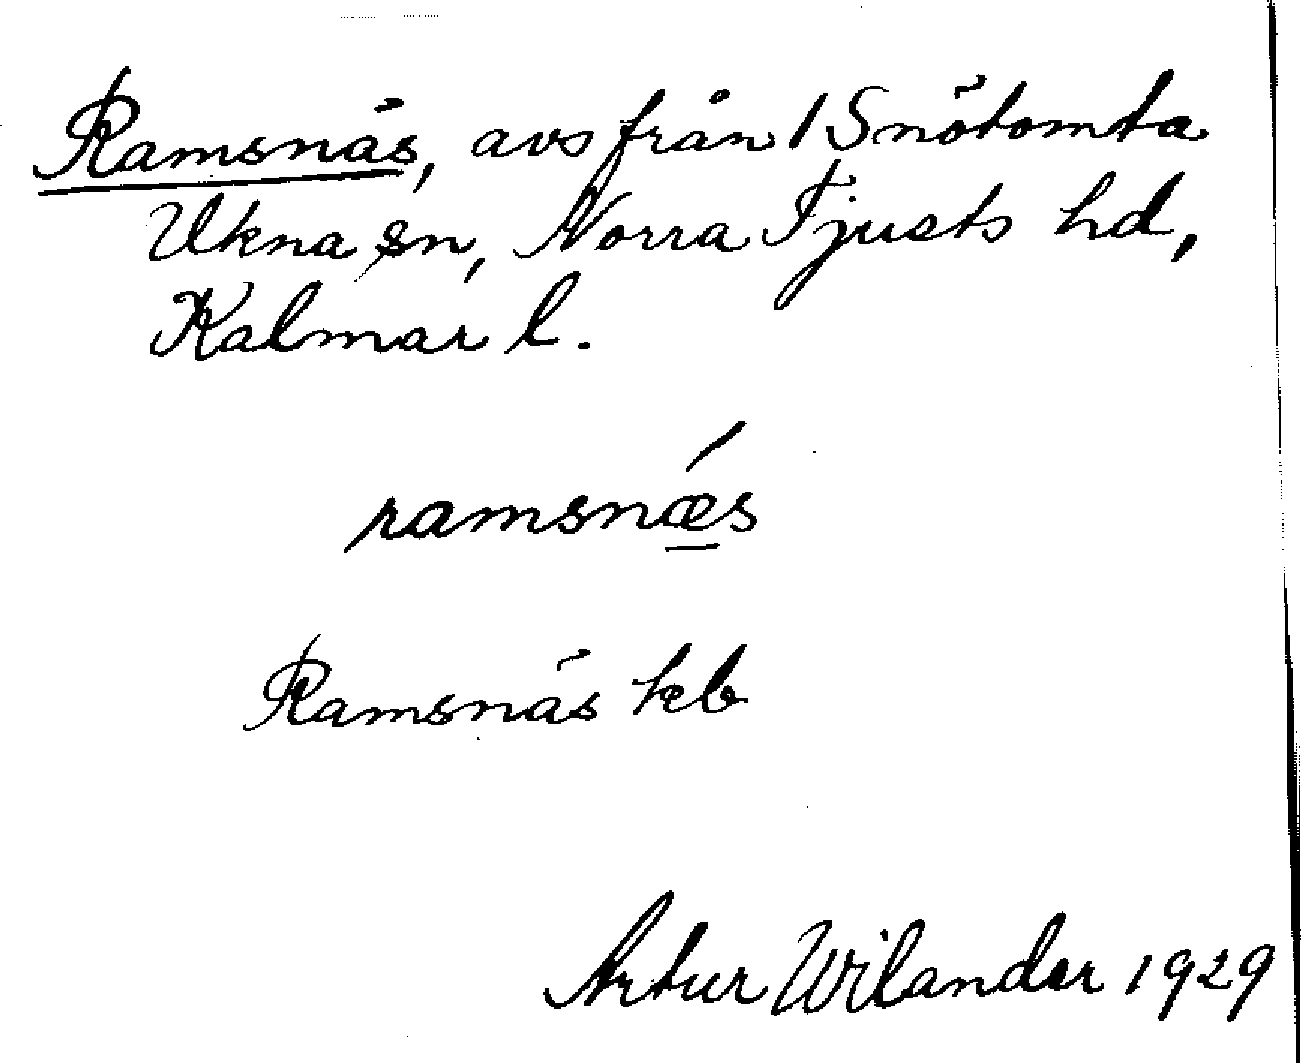 Ramsnäs, avs från 1 Snötomta
Ukna sn, Norra Tjusts hd,
Kalmar l.
ramsnǽ̲s
Ramsnäs kb
Artur Wilander 1929